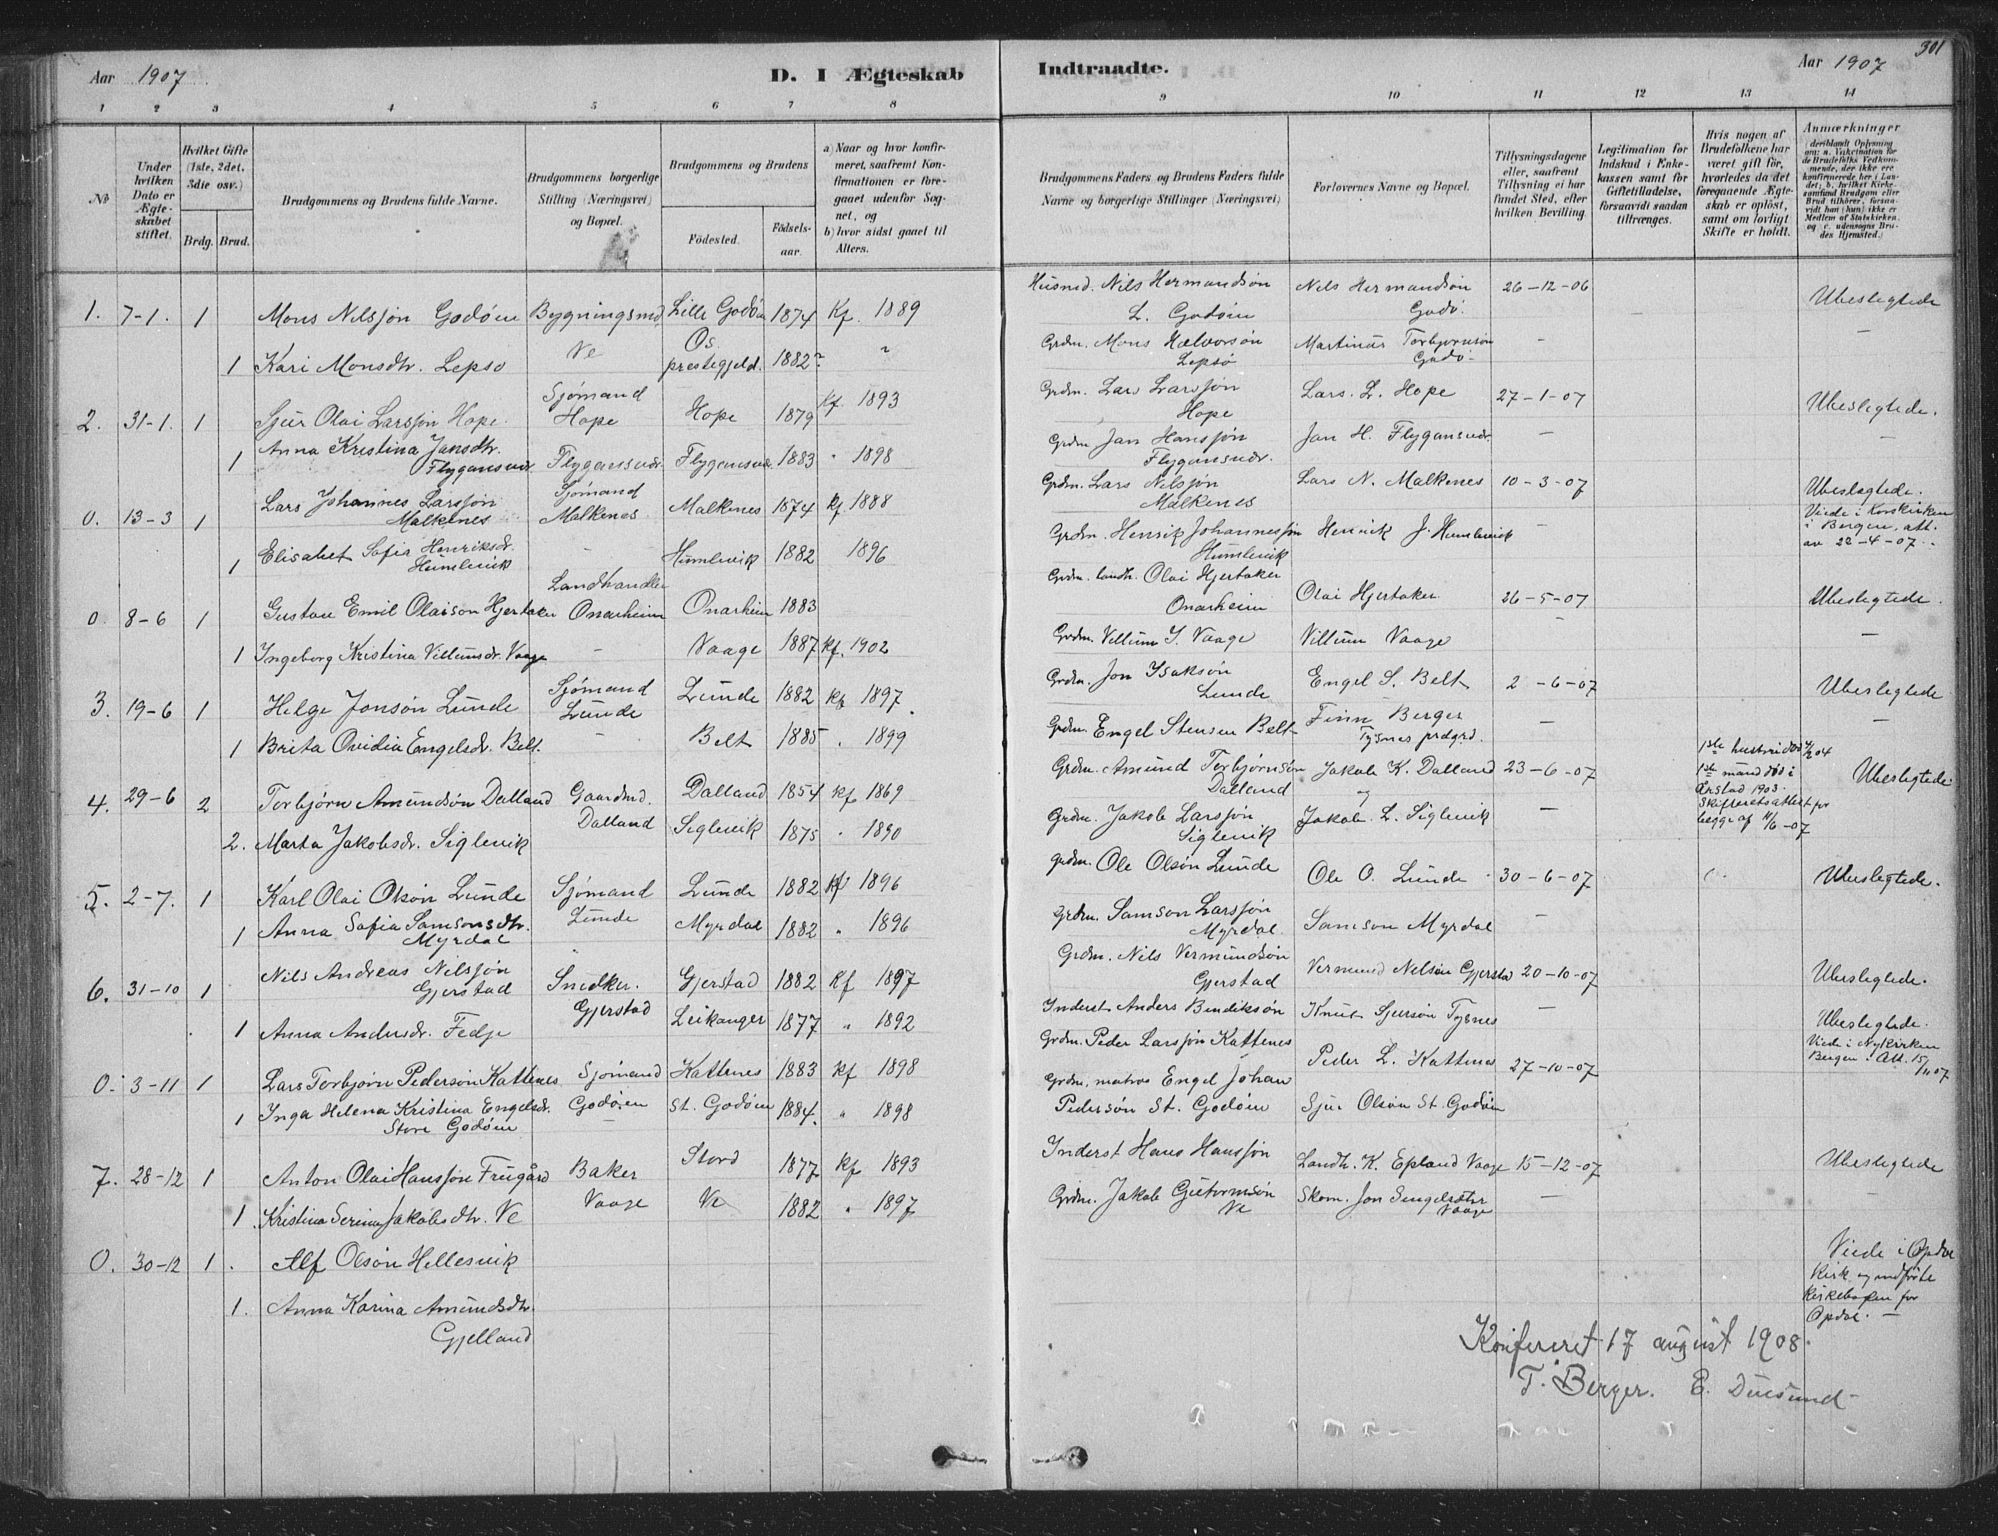 Aar 1907
D. I Ægteskab
Indtraadte.
Aar 1907
301
1 2 3 4 5 6 7 8
9 10 11 12 13 14
No
Under hvilken Dato er Ægteskabet stiftet.
Hvilket Gifte (1ste, 2det, 3die osv.)
Brdg. Brud.
Brudgommens og Brudens fulde Navne.
Brudgommens borgerlige Stilling (Næringsvei) og Bopæl.
Brudgommens og Brudens
Fødested.
Fødselsaar.
a) Naar og hvor konfirmeret, saafremt Konfirmationen er foregaaet udenfor Sognet, og
b) hvor sidst gaaet til Alters.
Brudgommens Faders og Brudens Faders fulde Navne og borgerlige Stillinger (Næringsvei)
Forlovernes Navne og Bopæl.
Tillysningsdagene eller, saafremt Tillysning ei har fundet Sted, efter hvilken Bevilling.
Legitimation for Indskud i Enkekassen samt for Giftetilladelse, forsaavidt saadan tiltrænges.
Hvis nogen af Brudefolkene har været gift før, hvorledes da det foregaaende Ægteskab er opløst, samt om lovligt Skifte er holdt.
Anmærkninger (deriblandt Oplysning om: a. Vakcination for de Brudefolks Vedkommende, der ikke ere konfirmerede her i Landet; b. hvilket Kirkesamfund Brudgom eller Brud tilhører, forsaavidt han (hun) ikke er Medlem af Statskirken, og c. udensogns Brudes Hjemsted.)
1. 7-1. 1 Mons Nilssøn Godøen Bygningsmd Lille Godøen 1874 Kf. 1889 Husmd. Nils Hermandsøn L. Godøen Nils Hermandsøn Godø. 26-12-06 Ubeslegtede
Ve
1 Kari Monsdtr. Lepsø Os prestegjeld. 1882 Grdm. Mons Halvorsøn Lepsø Martinus Torbjørnsøn Godø - —
2. 31-1. 1 Sjur Olai Larssøn Hope. Sjømand Hope Hope 1879 kf. 1893 Grdm. Lars Larssøn Hope Lars. L. Hope 27-1-07 Ubeslegtede.
1 Anna Kristina Jansdtr. Flygansvær Flygansvær. Flygansvær 1883 " 1898 Grdm Jan Hanssøn Flygansvær. Jan H. Flygansvær. — —
0. 13-3 1 Lars Johannes Larssøn Malkenes Sjømand Malkenes Malkenes 1874 kf. 1888 Grdm. Lars Nilssøn Malkenes Lars N. Malkenes 10-3-07 Ubeslegtede.
Viede i Korskirken i Bergen, att. av 22-4-07.
1 Elisabet Sofia Henriksdr. Humlevik - Humlevik 1882 1896 Grdm. Henrik Johannessøn Humlevik Henrik J. Humlevik -
0. 8-6 1 Gustav Emil Olaisøn Hjertaker Landhandler Onarheim Onarheim 1883 Grdm. landh. Olai Hjertaker Onarheim Olai Hjertaker 26-5-07 Ubeslegtede.
1 Ingeborg Kristina Villumsdr. Vaage - Vaage 1887 kf. 1902 Grdm. Villum I. Vaage Villum Vaage - —
3. 19-6 1 Helge Jonsøn Lunde Sjømand Lunde Lunde 1882 kf 1897. Grdm. Jon Isaksøn Lunde Engel S. Belt 2-6-07 Ubeslegtede
1 Brita Ovidia Engelsdr. Belt. - Belt 1885 " 1899 Grdm. Engel Stensen Belt Finn Berger Tysnes prdgrd. — —
4. 29-6 2 Torbjørn Amundsøn Dalland Gaardmd. Dalland Dalland 1854 kf 1869 Grdm. Amund Torbjørnsøn Dalland Jakob K. Dalland 23-6-07 Ubeslegtede
og
1ste hustru død 04
1ste mand død i Årstad 1903.
Skifteretsattest for begge af 11/6-07
2. Marta Jakobsdr. Siglevik Siglevik 1875 " 1890 Grdm. Jakob Larssøn Siglevik Jakob L. Siglevik —
5. 2-7. 1 Karl Olai Olsøn Lunde Sjømand Lunde Lunde 1882 kf 1896 Grdm. Ole Olsøn Lunde Ole O. Lunde 30-6-07 Ubeslegtede.
1 Anna Sofia Samsonsdtr. Myrdal Myrdal 1882 " 1896 Grdm. Samson Larssøn Myrdal Samson Myrdal —
6. 31-10 1 Nils Andreas Nilssøn Gjerstad Snedker. Gjerstad Gjerstad 1882 kf 1897 Grdm. Nils Vermundsøn Gjerstad Vermund Nilsøn Gjerstad 20-10-07 Ubeslegtede.
1 Anna Andersdr. Fedje Leikanger 1877 " 1892 Inderst Anders Bendiksøn Knut Sjursøn Tysnes —
0. 3-11 1 Lars Torbjørn Pedersøn Kattenes Sjømand Godøen Kattenes 1883 kf 1898 Grdm. Peder Larssøn Kattenes Peder L. Kattenes 27-10-07 Ubeslegtede.
Viede i Nykirken Bergen i Att. 15/11 07
1 Inga Helena Kristina Engelsdr. Store Godøen - St. Godøen 1884. " 1898 Grdm. matros Engel Johan Pedersøn St. Godøen Sjur Olsøn St. Godøen
7. 28-12 1 Anton Olai Hanssøn Frugård Baker Vaage Stord 1877 kf 1893 Inderst Hans Hanssøn Landh. K. Epland Vaage 15-12-07 Ubeslegtede
1 Kristina Serina Jakobsdtr. Ve Ve 1882 " 1897 Grdm. Jakob Gutormsøn Ve Skom. Jon Vaage — —
0. 30-12 1. Alf Olsøn Hellesvik Viede i Opdal Kirk og indførte Kirkebogen for Opdal. —
1. Anna Karina Amundsdtr. Gjelland
Konfereret 17 august 1908.
F. Berger. E. Duesund